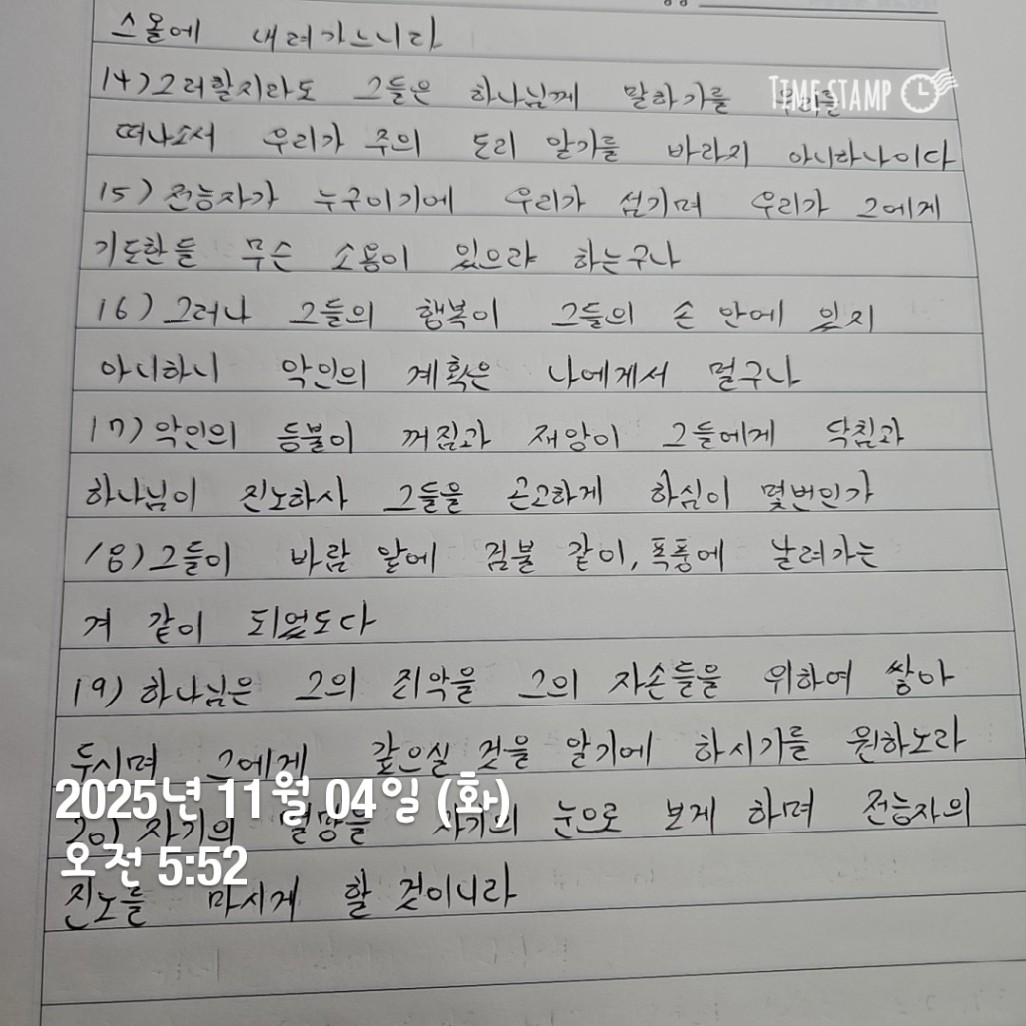 스올에 내려가느니라
14) 그러할지라도 그들은 하나님께 말하기를 우리를
TIMESTAMP
떠나소서 우리가 주의 도리 알기를 바라지 아니하나이다
15) 전능자가 누구이기에 우리가 섬기며 우리가 그에게
기도한들 무슨 소용이 있으랴 하는구나
16) 그러나 그들의 행복이 그들의 손 안에 있지
아니하니 악인의 계획은 나에게서 멀구나
17) 악인의 등불이 꺼짐과 재앙이 그들에게 닥침과
하나님이 진노하사 그들을 곤고하게 하심이 몇번인가
18) 그들이 바람 앞에 검불 같이, 폭풍에 날려가는
겨 같이 되었도다
19) 하나님은 그의 죄악을 그의 자손들을 위하여 쌓아
두시며 그에게 갚으실 것을 알기에 하시기를 원하노라
2025년 11월 04일 (화)
20) 자기의 멸망을 자기의 눈으로 보게 하며 전능자의
오전 5:52
진노를 마시게 할 것이니라